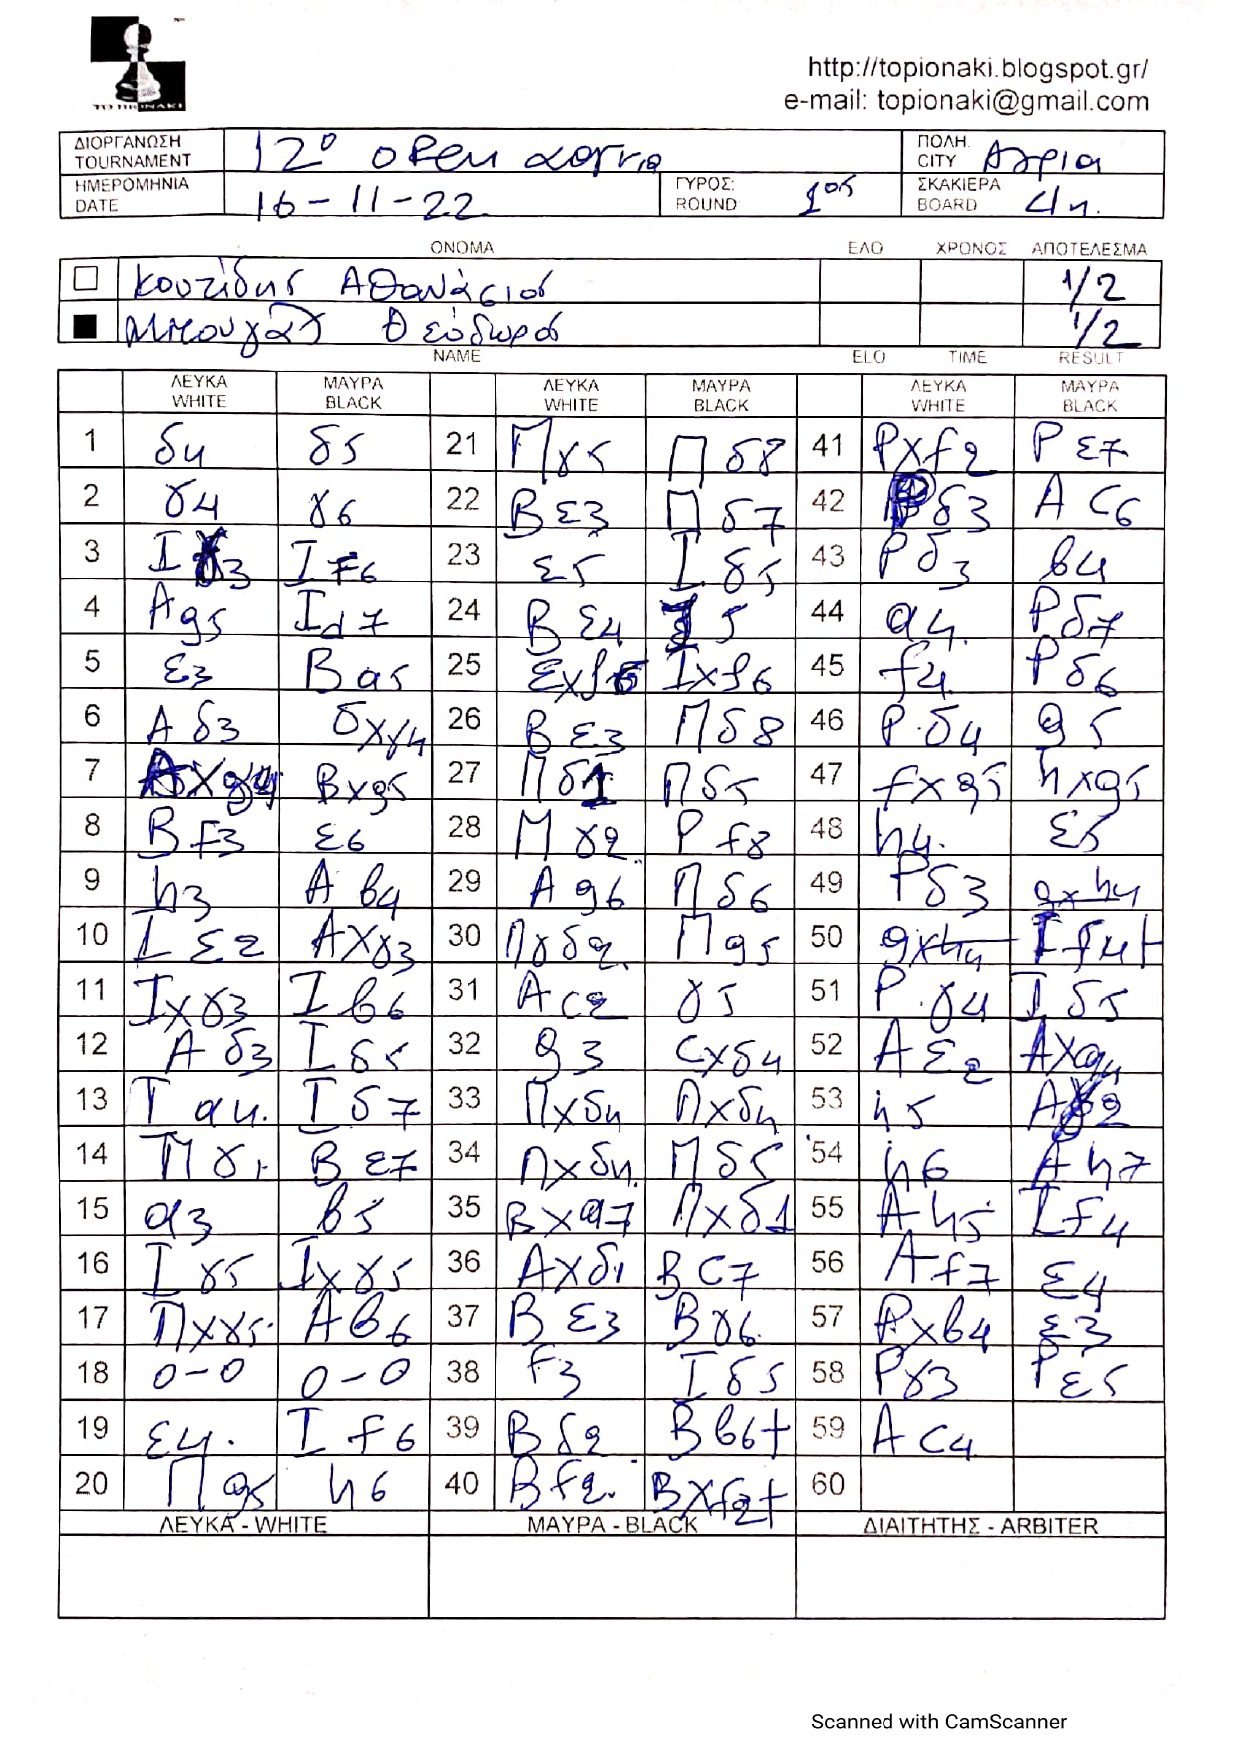 http://topionaki.blogspot.gr/
e-mail: topionaki@gmail.com
ΔΙΟΡΓΑΝΩΣΗ TOURNAMENT 12ο open ΠΟΛΗ. CITY Αγρια
ΗΜΕΡΟΜΗΝΙΑ DATE 16-11-22 ΓΥΡΟΣ: ROUND 1ος ΣΚΑΚΙΕΡΑ BOARD 4η.
ΟΝΟΜΑ ΕΛΟ ΧΡΟΝΟΣ ΑΠΟΤΕΛΕΣΜΑ
Κουτίδης Αθανάσιος 1/2
Μπουγάς Θεόδωρος 1/2
NAME ELO TIME RESULT
ΛΕΥΚΑ WHITE ΜΑΥΡΑ BLACK ΛΕΥΚΑ WHITE ΜΑΥΡΑ BLACK ΛΕΥΚΑ WHITE ΜΑΥΡΑ BLACK
1 δ4 δ5 21 Πγ5 Πδ8 41 Ρxf2 Ρε7
2 γ4 γ6 22 Βε3 Πδ7 42 Ρδ3 Ac6
3 Ιγ3 Ιf6 23 ε5 Ιδ5 43 Ρδ3 b4
4 Αg5 Ιd7 24 Βε4 5 44 a4. Ρδ7
5 ε3 Βa5 25 Εxf6 Ιxf6 45 f4. Ρδ6
6 Αδ3 δxγ4 26 Βε3 Πδ8 46 Ρ.δ4 g5
7 Αxγ4 Βxg5 27 Πδ1 Πδ5 47 fxg5 hxg5
8 Βf3 ε6 28 Πγ2 Ρf8 48 h4. ε5
9 h3 Αb4 29 Αg6 Πδ6 49 Ρδ3 gxh4
10 Ιε2 Αxγ3 30 Πγδ2. Πg5 50 gxh4 Ιf4+
11 Ιxγ3 Ιb6 31 Αc2 γ5 51 Ρ.γ4 Ιδ5
12 Αδ3 Ιδ5 32 g3 Cxδ4 52 Αε2 Αxg4
13 Ιa4. Ιδ7 33 Πxδ4 Πxδ4 53 h5 Αg2
14 Πγ1 Βε7 34 Πxδ4. Πδ5 54 h6 Αh7
15 a3 b5 35 Βxa7 Πxδ1 55 Αh5 Ιf4
16 Ιγ5 Ιxγ5 36 Αxδ1 Βc7 56 Αf7 ε4
17 Πxγ5. Αb6 37 Βε3 Βγ6. 57 Αxb4 ε3
18 0-0 0-0 38 f3 Ιδ5 58 Ργ3 Ρε5
19 ε4. Ιf6 39 Βδ2 Βb6+ 59 Αc4
20 Πg5 h6 40 Βf2. Βxf2+ 60
ΛΕΥΚΑ - WHITE ΜΑΥΡΑ - BLACK ΔΙΑΙΤΗΤΗΣ - ARBITER
Scanned with CamScanner